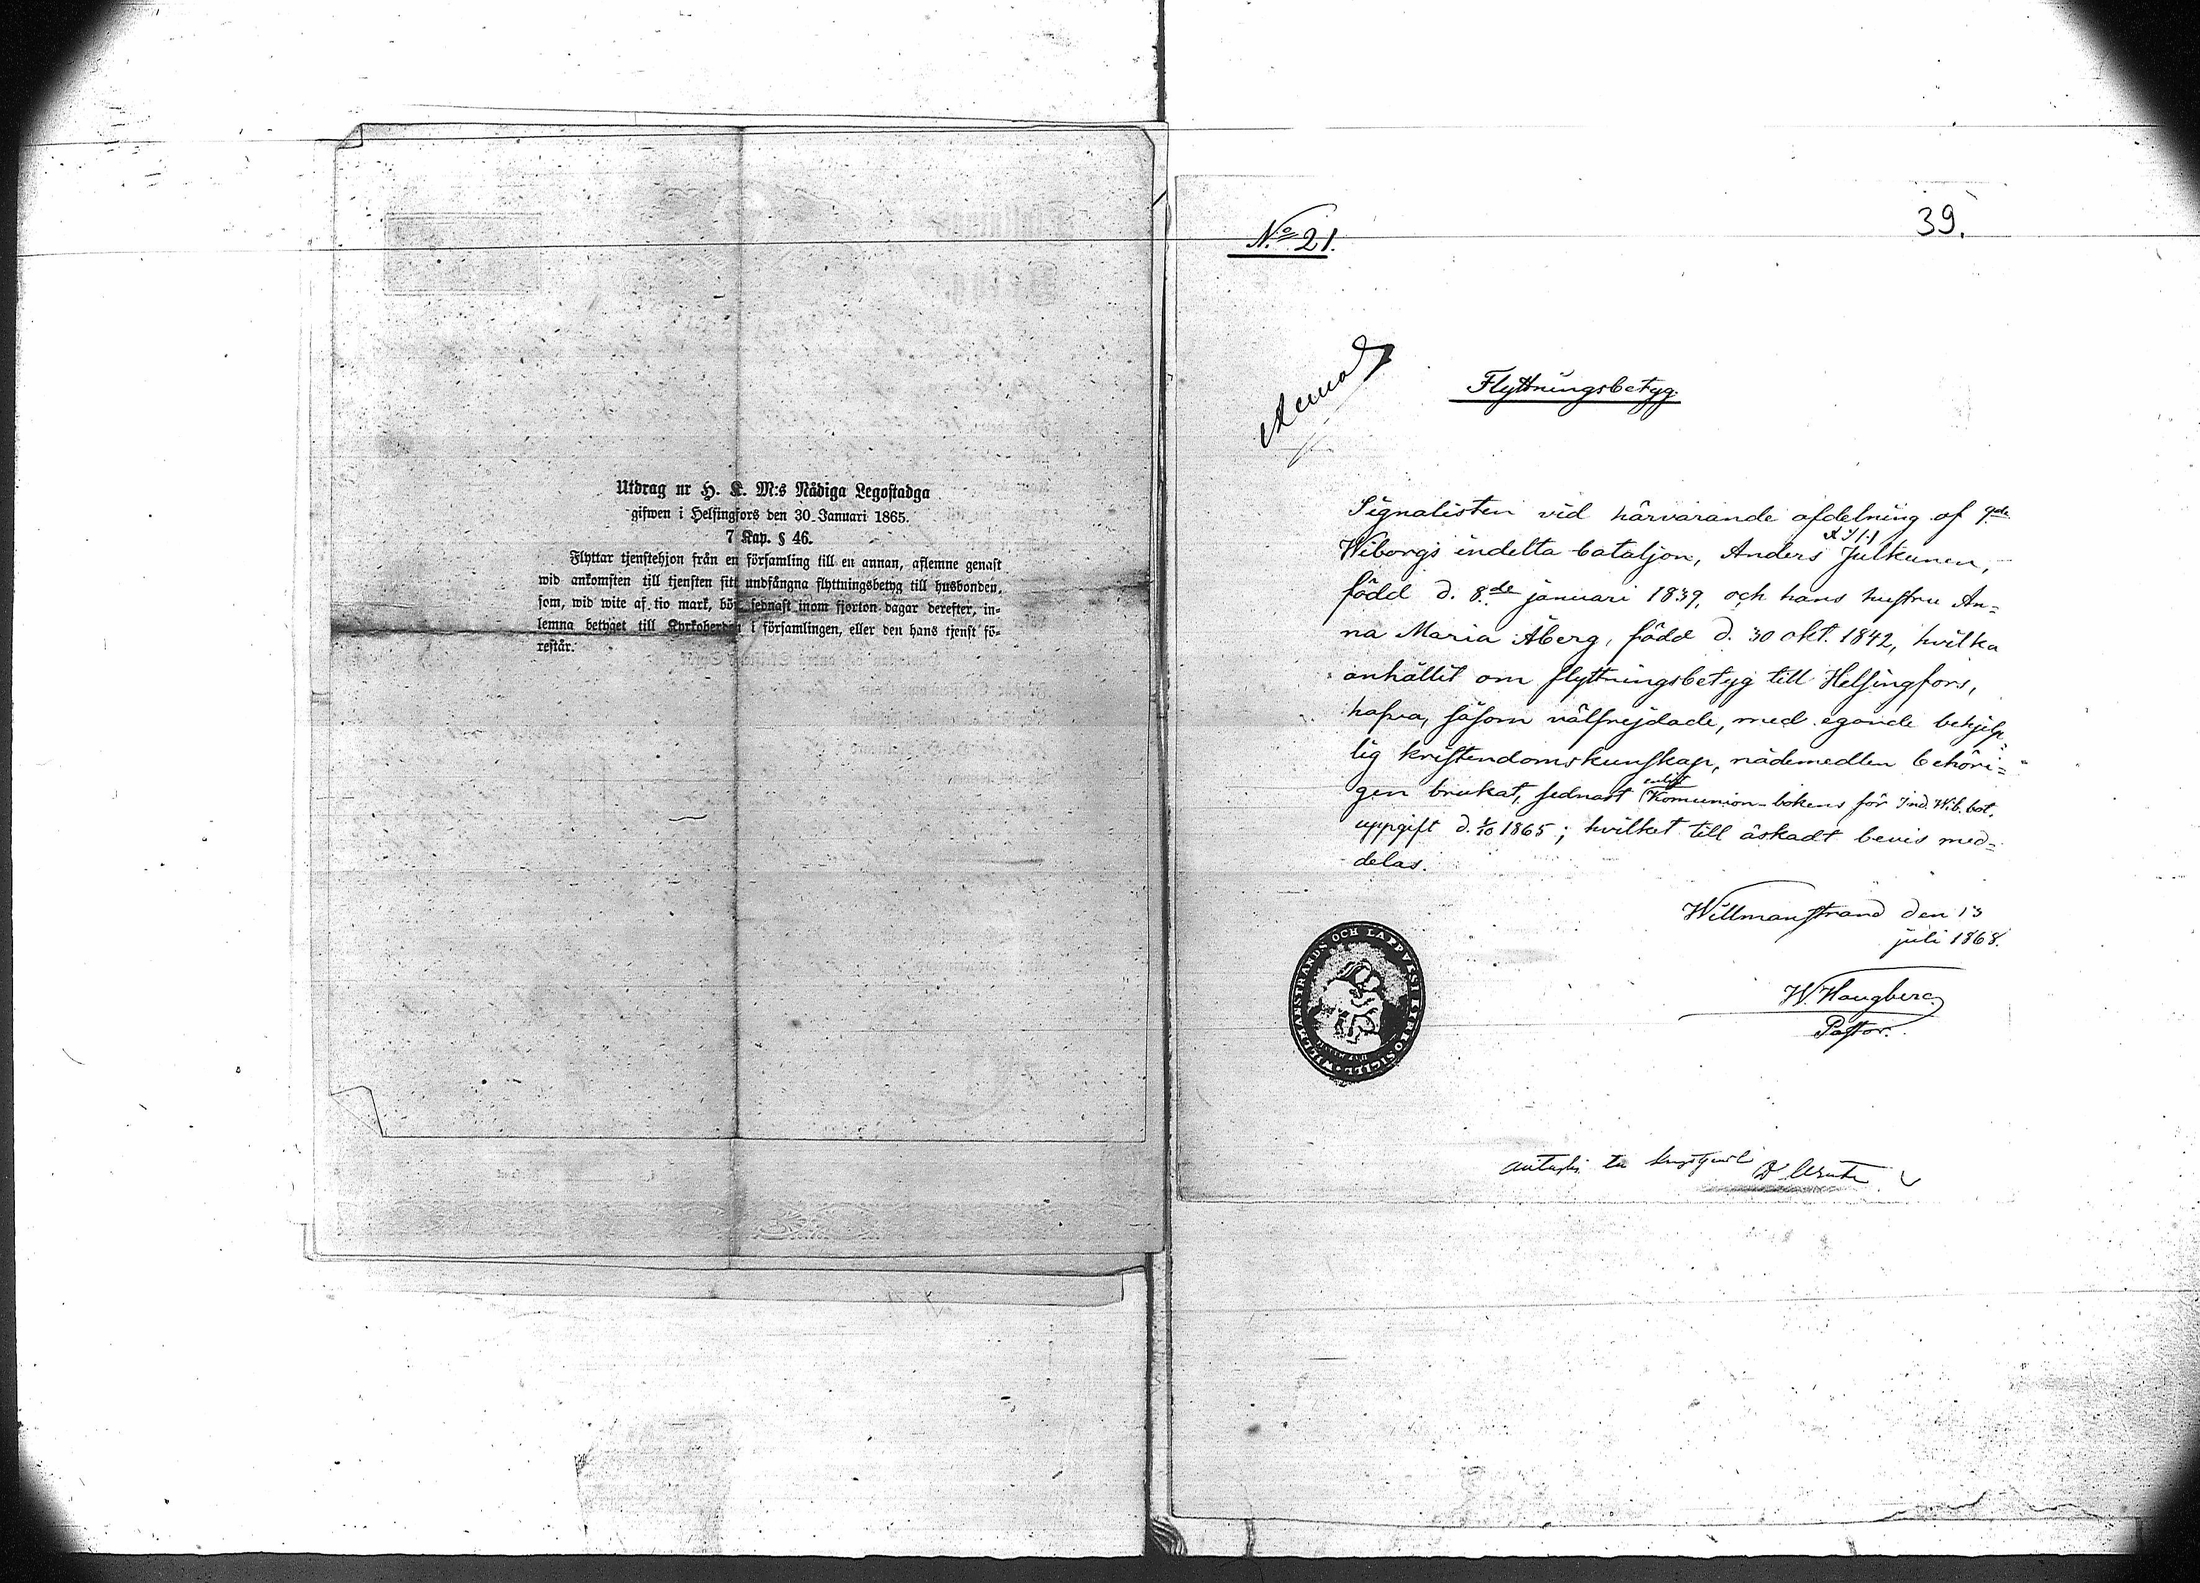 Utdrag ur H. K. M:s Nådiga Legostadga
gifwen i Helsingfors den 30 Januari 1865.
7 Kap. § 46.
Flyttar tjenstehjon från en församling till en annan, aflemne genast
wid ankomsten till tjensten sitt undfångna flyttningsbetyg till husbonden,
som, wid wite af tio mark, bör sednast inom fjorton dagar derefter, in-
lemna betyget till Kyrkoherden i församlingen, eller den hans tjenst fö-
restår.
39.
N:o 21.
Flyttningsbetyg.
Signalisten vid härvarande afdelning af
Wiborgs indelta bataljon, Anders Julkunen,
född d. 8:de januari 1839, och hans hustru An=
na Maria Åberg, född d. 30 okt. 1842, hvilka
anhållit om flyttningsbetyg till Helsingfors,
hafva, såsom välfrejdade, med egande behjelp=
lig kristendomskunskap, nådemedlen behöri=
gen brukat, sednast enligt Komunion-bokens för Ind. Wib. bat.
uppgift d. 1865; hvilket till äskadt bevis med=
delas.
Willmanstrand den 13
juli 1868.
W. Hougberg
Pastor.
WILLMANSTRANDS OCH LAPPVESI KYRKOSIGILL